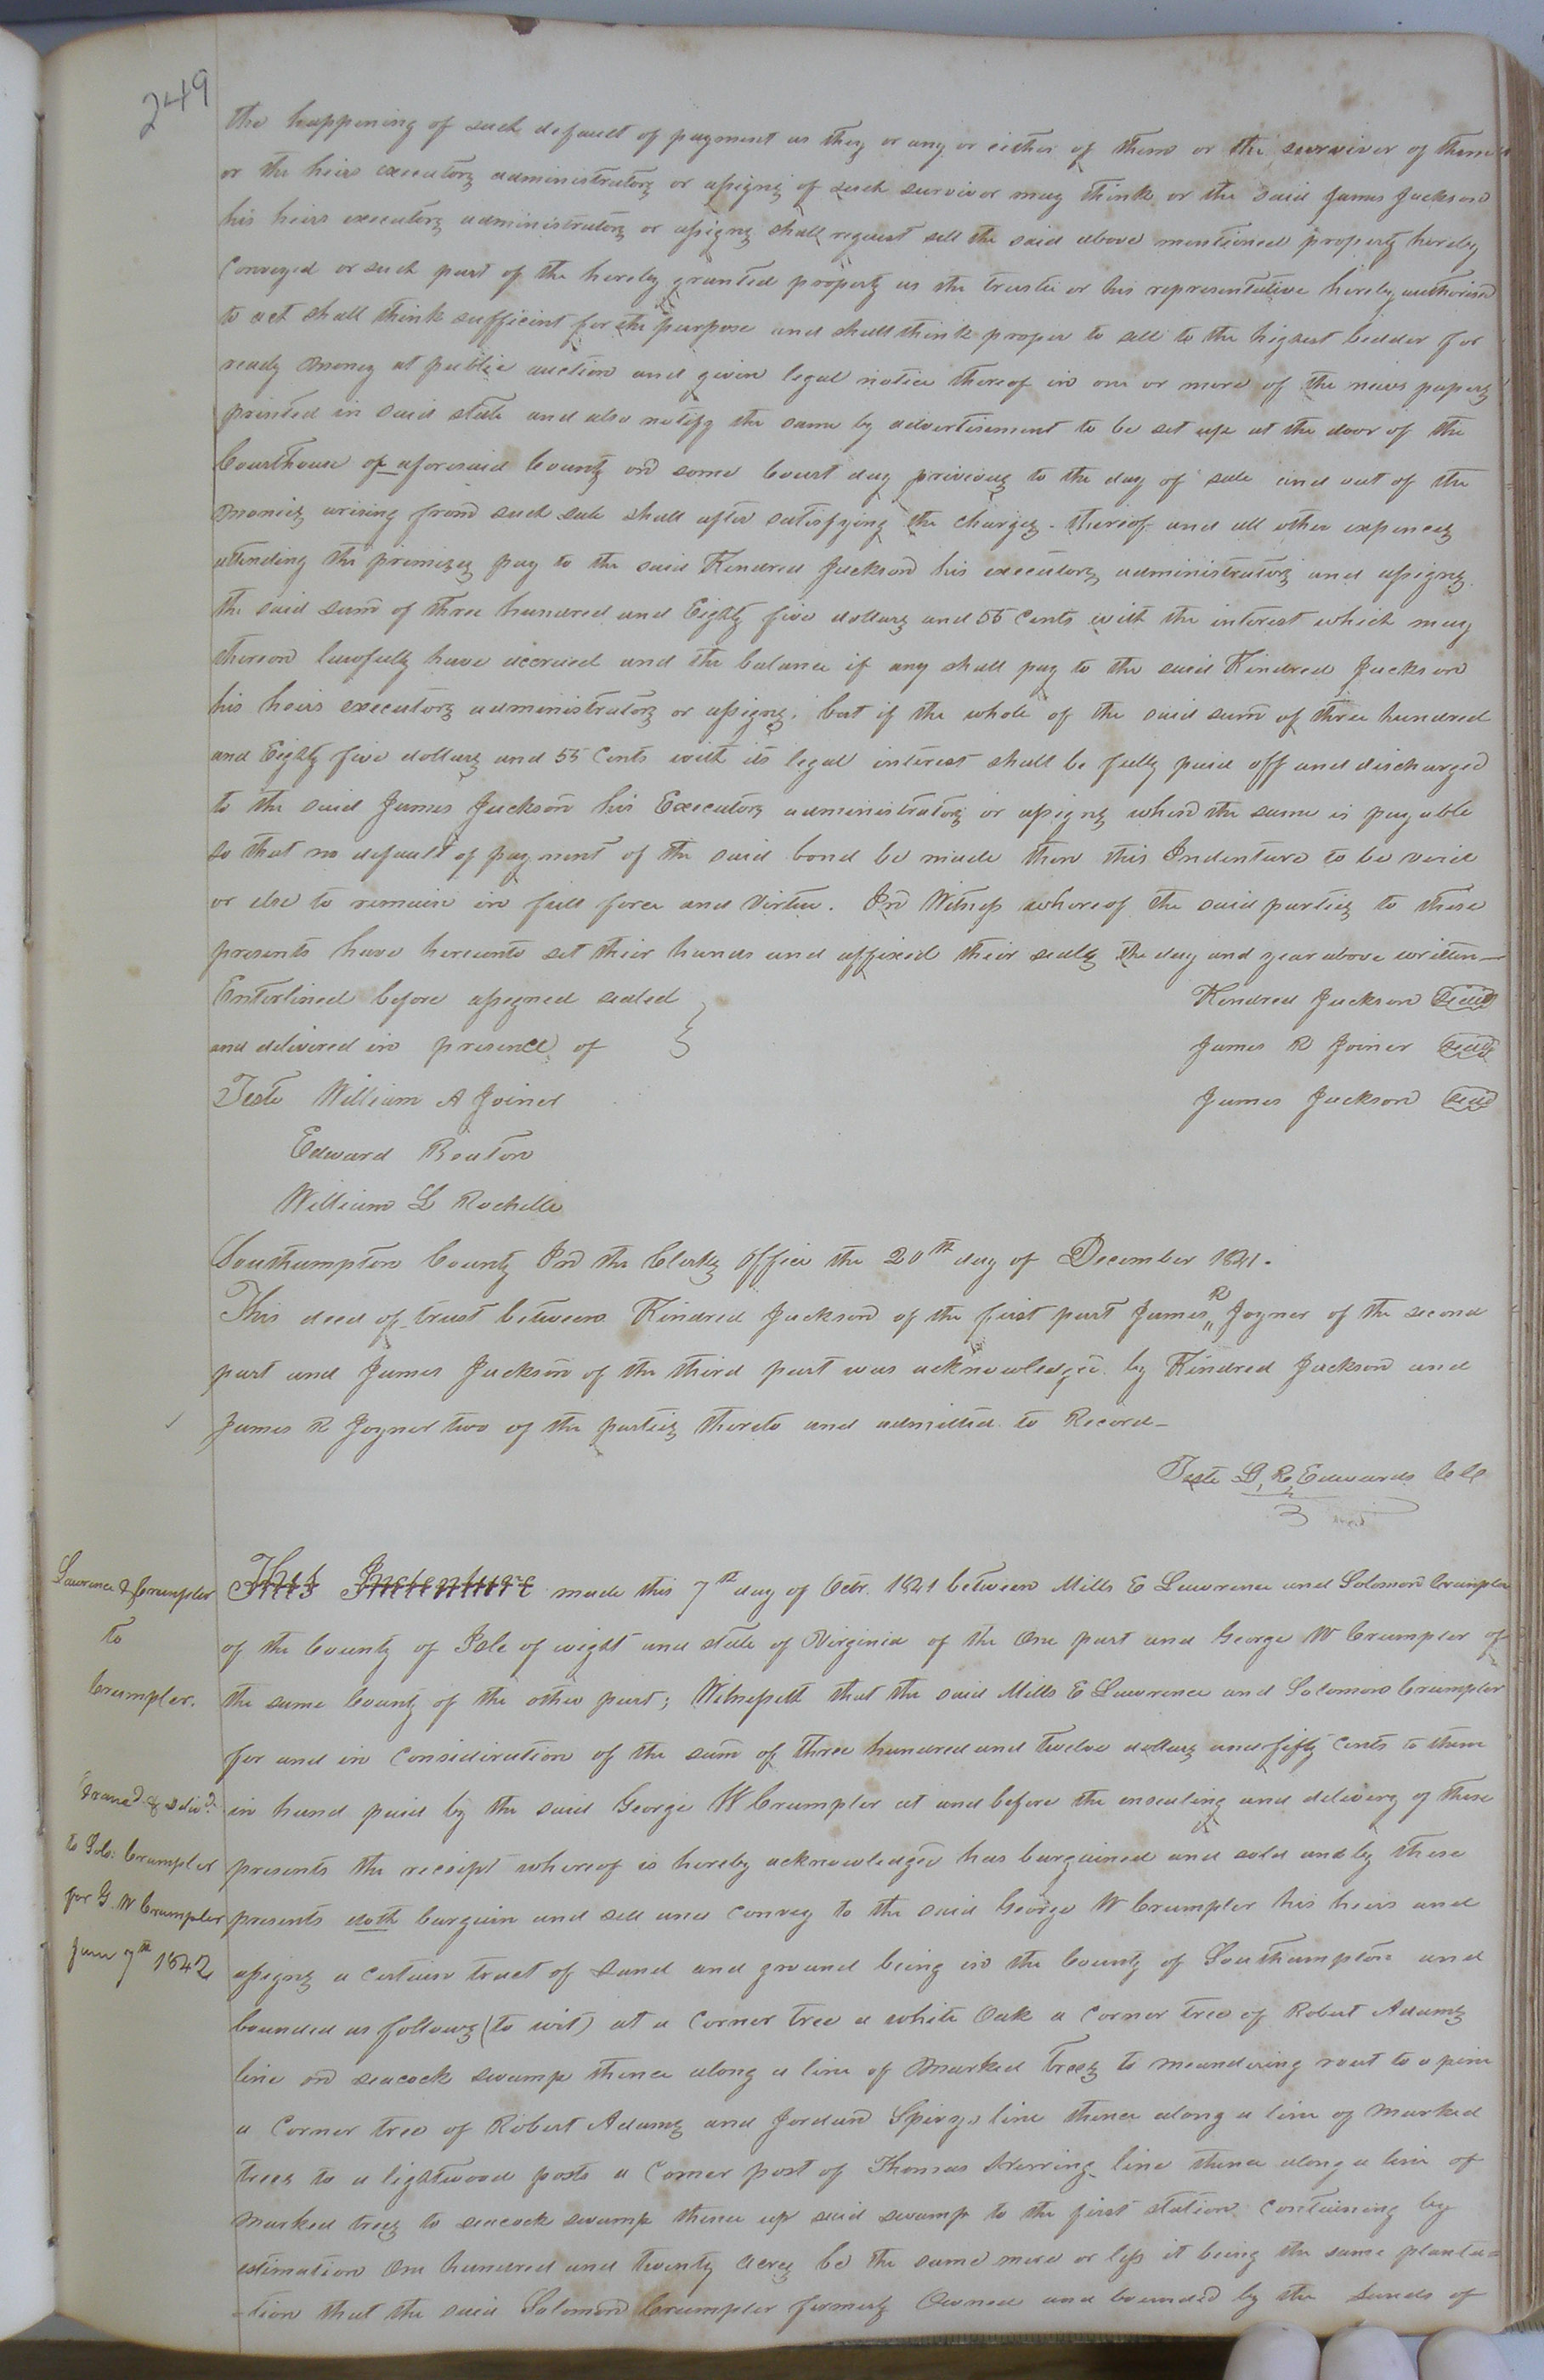 249
the happening of such default of payment as they or any or either of them or the survivor of them
or the heirs executors administrators or assigns of such survivor may think or the said James Jackson
his heirs executors administrators or assigns shall request sell the said above mentioned property hereby
Conveyed or such part of the hereby granted property as the trustee or his representative hereby authorised
to act shall think sufficient for the purpose and shall think proper to sell to the highest bedder for
ready money at public auction and given legal notice thereof in one or more of the news papers
printed in said state and also notify the same by advertisement to be set up at the door of the
Courthouse of aforesaid County on some Court day privious to the day of sale and out of the
monies arising from such sale shall after satisfying the charges thereof and all other expences
attending the premises pay to the said Kindred Jackson his executors administrators and assigns
the said sum of three hundred and Eighty five dollars and 55 Cents with the interest which may
thereon lawfully have accrued and the balance if any shall pay to the said Kindred Jackson
his heirs executors administrators or assigns. but if the whole of the said sum of three hundred
and Eighty five dollars and 55 Cents with its legal interest shall be fully paid off and discharged
to the said James Jackson his Executors administrators or assigns when the same is payable
so that no default of payment of the said bond be made then this Indenture to be void
or else to remain in full force and Virtue. In Witness whereof the said parties to these
presents have hereunto set their hands and affixed their seals the day and year above written—
Enterlined before assigned sealed Kindred Jackson Seal
and delivered in presence of James R Joiner Seal
Teste William A Joiner James Jackson Seal
Edward Beaton
William L Rochelle
Southampton County In the Clerks Office the 20th day of December 1841.
This deed of trust between Kindred Jackson of the first part James R Joyner of the second
part and James Jackson of the third part was acknowledged by Kindred Jackson and
James R Joyner two of the parties thereto and admitted to Record—
Teste L, R, Edwards CC
Lawrence & Crumpler
to
Crumpler.
Examd & delivd
to Solo: Crumpler
for G. W Crumpler
Jany 7th 1842
This Indenture made this 7th day of Octr. 1841 between Mills E Lawrence and Solomon Crumpler
of the County of Isle of wight and state of Virginia of the One part and George W Crumpler of
the same County of the other part; Witnesseth that the said Mills E Lawrence and Solomon Crumpler
for and in Consideration of the sum of three hundred and twelve dollars and fifty Cents to them
in hand paid by the said George W Crumpler at and before the ensealing and delivery of these
presents the receipt whereof is hereby acknowledged has bargained and sold and by these
presents doth bargain and sell and convey to the said George W Crumpler his heirs and
assigns a certain tract of Land and ground being in the County of Southampton and
bounded as follows (to wit) at a Corner tree a white Oak a Corner tree of Robert Adams
line on seacock swamp thence along a line of marked trees to meandering rout to a pine
a Corner tree of Robert Adams and Jordan Spiveys line thence along a line of marked
trees to a lightwood posts a Corner post of Thomas Herring line thence along a line of
marked trees to seacock swamp thence up said swamp to the first station containing by
estimation One hundred and twenty acres be the same more or less it being the same planta=
=tion that the said Solomon Crumpler formerly Owned and bounded by the Lands of